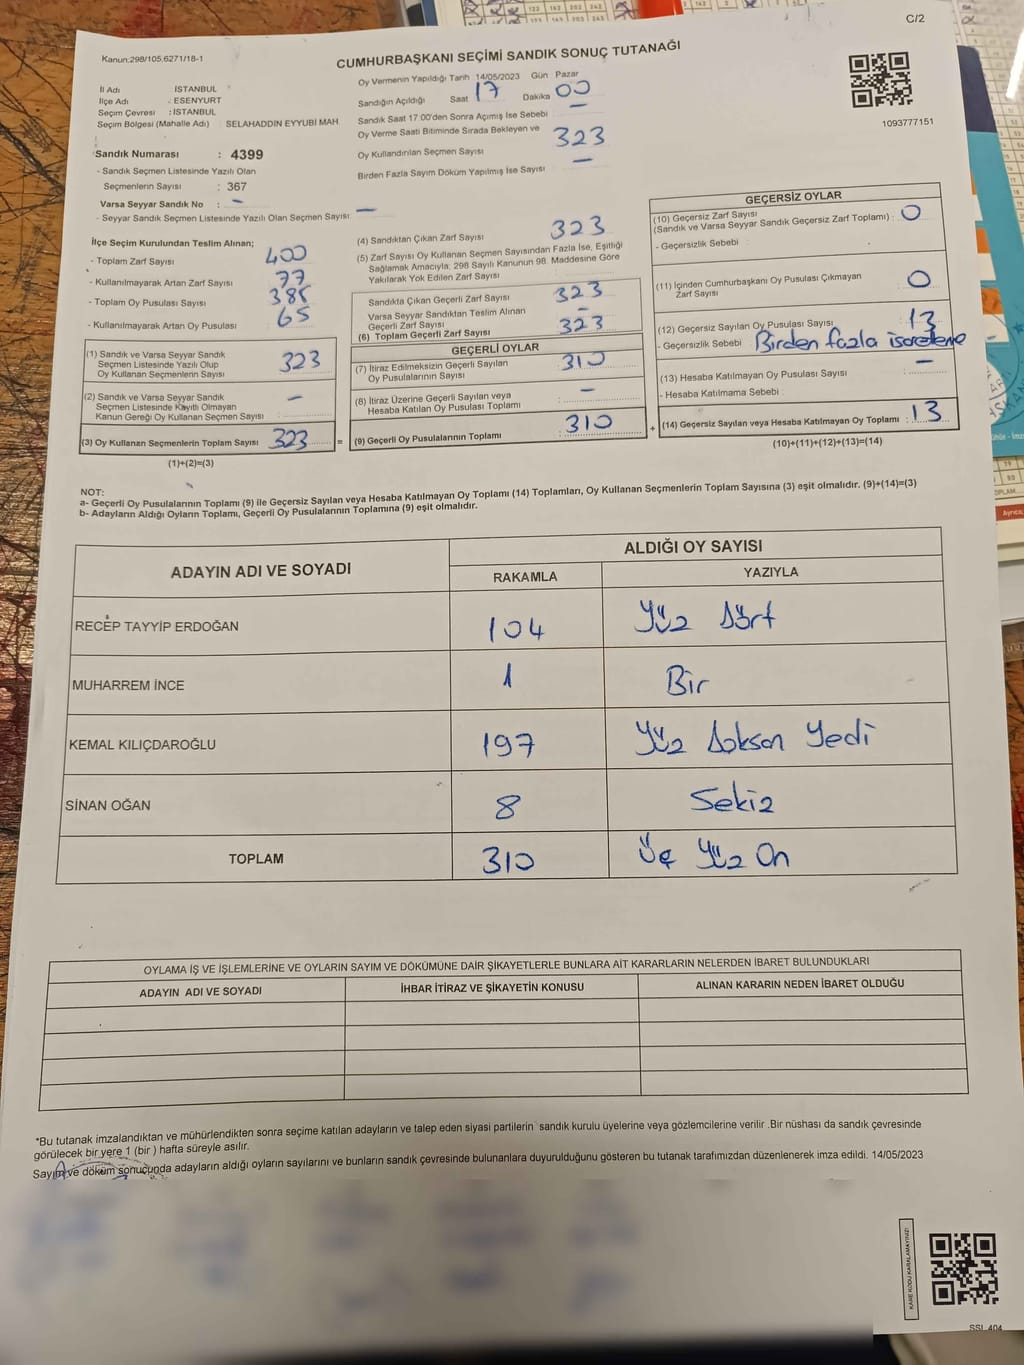 C/2
Kanun:298/105,6271/18-1
CUMHURBAŞKANI SEÇİMİ SANDIK SONUÇ TUTANAĞI
İl Adı : İSTANBUL
İlçe Adı : ESENYURT
Seçim Çevresi : İSTANBUL
Seçim Bölgesi (Mahalle Adı) : SELAHADDIN EYYUBİ MAH.
Oy Vermenin Yapıldığı Tarih 14/05/2023 Gün Pazar
Sandığın Açıldığı Saat 17 Dakika 00
Sandık Saat 17:00'den Sonra Açımış İse Sebebi : —
Oy Verme Saati Bitiminde Sırada Bekleyen ve
Oy Kullandırılan Seçmen Sayısı 323
Birden Fazla Sayım Döküm Yapılmış İse Sayısı —
1093777151
Sandık Numarası : 4399
- Sandık Seçmen Listesinde Yazılı Olan
Seçmenlerin Sayısı : 367
Varsa Seyyar Sandık No : —
- Seyyar Sandık Seçmen Listesinde Yazılı Olan Seçmen Sayısı : —
İlçe Seçim Kurulundan Teslim Alınan;
- Toplam Zarf Sayısı 400
- Kullanılmayarak Artan Zarf Sayısı 77
- Toplam Oy Pusulası Sayısı 385
- Kullanılmayarak Artan Oy Pusulası 65
(1) Sandık ve Varsa Seyyar Sandık
Seçmen Listesinde Yazılı Olup
Oy Kullanan Seçmenlerin Sayısı 323
(2) Sandık ve Varsa Seyyar Sandık
Seçmen Listesinde Kayıtlı Olmayan
Kanun Gereği Oy Kullanan Seçmen Sayısı —
(3) Oy Kullanan Seçmenlerin Toplam Sayısı 323 =
(1)+(2)=(3)
(4) Sandıktan Çıkan Zarf Sayısı 323
(5) Zarf Sayısı Oy Kullanan Seçmen Sayısından Fazla İse, Eşitliği
Sağlamak Amacıyla, 298 Sayılı Kanunun 98. Maddesine Göre
Yakılarak Yok Edilen Zarf Sayısı
Sandıkta Çıkan Geçerli Zarf Sayısı 323
Varsa Seyyar Sandıktan Teslim Alınan
Geçerli Zarf Sayısı —
(6) Toplam Geçerli Zarf Sayısı 323
GEÇERLİ OYLAR
(7) İtiraz Edilmeksizin Geçerli Sayılan
Oy Pusulalarının Sayısı 310
(8) İtiraz Üzerine Geçerli Sayılan veya
Hesaba Katılan Oy Pusulası Toplamı : —
(9) Geçerli Oy Pusulalarının Toplamı : 310 +
GEÇERSİZ OYLAR
(10) Geçersiz Zarf Sayısı
(Sandık ve Varsa Seyyar Sandık Geçersiz Zarf Toplamı) : 0
- Geçersizlik Sebebi :
(11) İçinden Cumhurbaşkanı Oy Pusulası Çıkmayan
Zarf Sayısı 0
(12) Geçersiz Sayılan Oy Pusulası Sayısı 13
- Geçersizlik Sebebi Birden fazla işaretleme
(13) Hesaba Katılmayan Oy Pusulası Sayısı —
- Hesaba Katılmama Sebebi :
(14) Geçersiz Sayılan veya Hesaba Katılmayan Oy Toplamı : 13
(10)+(11)+(12)+(13)=(14)
NOT:
a- Geçerli Oy Pusulalarının Toplamı (9) ile Geçersiz Sayılan veya Hesaba Katılmayan Oy Toplamı (14) Toplamları, Oy Kullanan Seçmenlerin Toplam Sayısına (3) eşit olmalıdır. (9)+(14)=(3)
b- Adayların Aldığı Oyların Toplamı, Geçerli Oy Pusulalarının Toplamına (9) eşit olmalıdır.
ADAYIN ADI VE SOYADI
ALDIĞI OY SAYISI
RAKAMLA YAZIYLA
RECEP TAYYİP ERDOĞAN 104 Yüz Dört
MUHARREM İNCE 1 Bir
KEMAL KILIÇDAROĞLU 197 Yüz Doksan Yedi
SİNAN OĞAN 8 Sekiz
TOPLAM 310 Üç Yüz On
OYLAMA İŞ VE İŞLEMLERİNE VE OYLARIN SAYIM VE DÖKÜMÜNE DAİR ŞİKAYETLERLE BUNLARA AİT KARARLARIN NELERDEN İBARET BULUNDUKLARI
ADAYIN ADI VE SOYADI İHBAR İTİRAZ VE ŞİKAYETİN KONUSU ALINAN KARARIN NEDEN İBARET OLDUĞU
*Bu tutanak imzalandıktan ve mühürlendikten sonra seçime katılan adayların ve talep eden siyasi partilerin sandık kurulu üyelerine veya gözlemcilerine verilir .Bir nüshası da sandık çevresinde
görülecek bir yere 1 (bir ) hafta süreyle asılır.
Sayım ve döküm sonuçunda adayların aldığı oyların sayılarını ve bunların sandık çevresinde bulunanlara duyurulduğunu gösteren bu tutanak tarafımızdan düzenlenerek imza edildi. 14/05/2023
KARE KODU KARALAMAYINIZ!
SSI 404